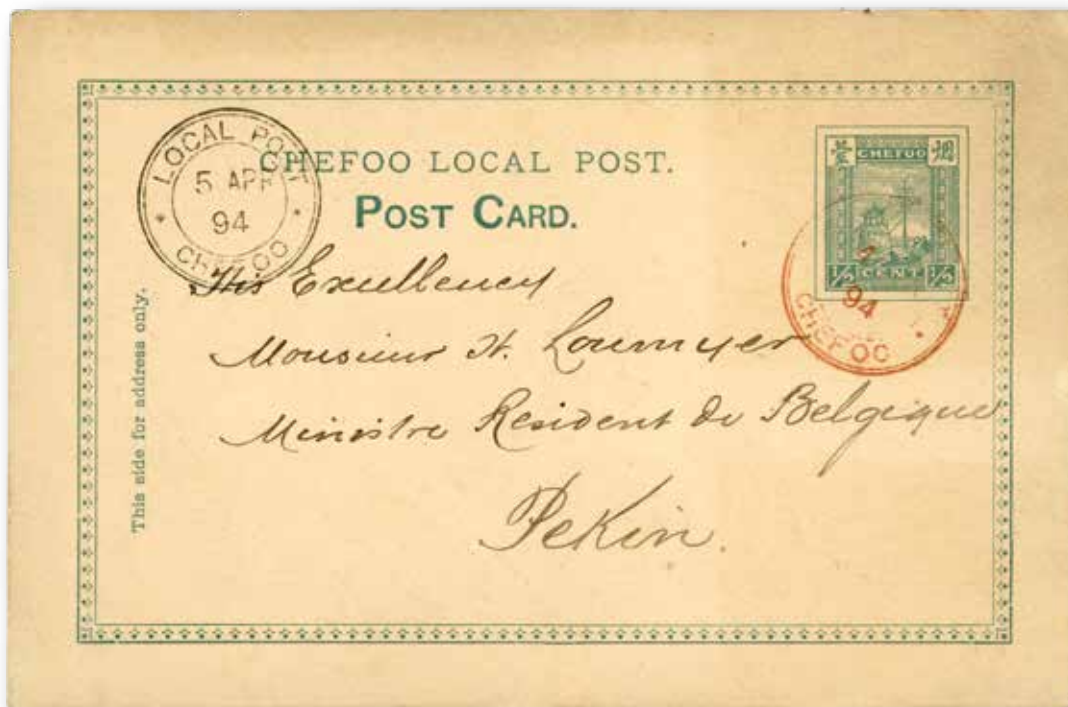 LOCAL POST
5 APR
94
CHEFOO
CHEFOO LOCAL POST.
POST CARD.
臺 CHEFOO 烟
1/2 CENT 1/2
94
CHEFOO
This side for address only.
His Excellency
Monsieur H. Loumyer
Ministre Resident de Belgique
Pekin.